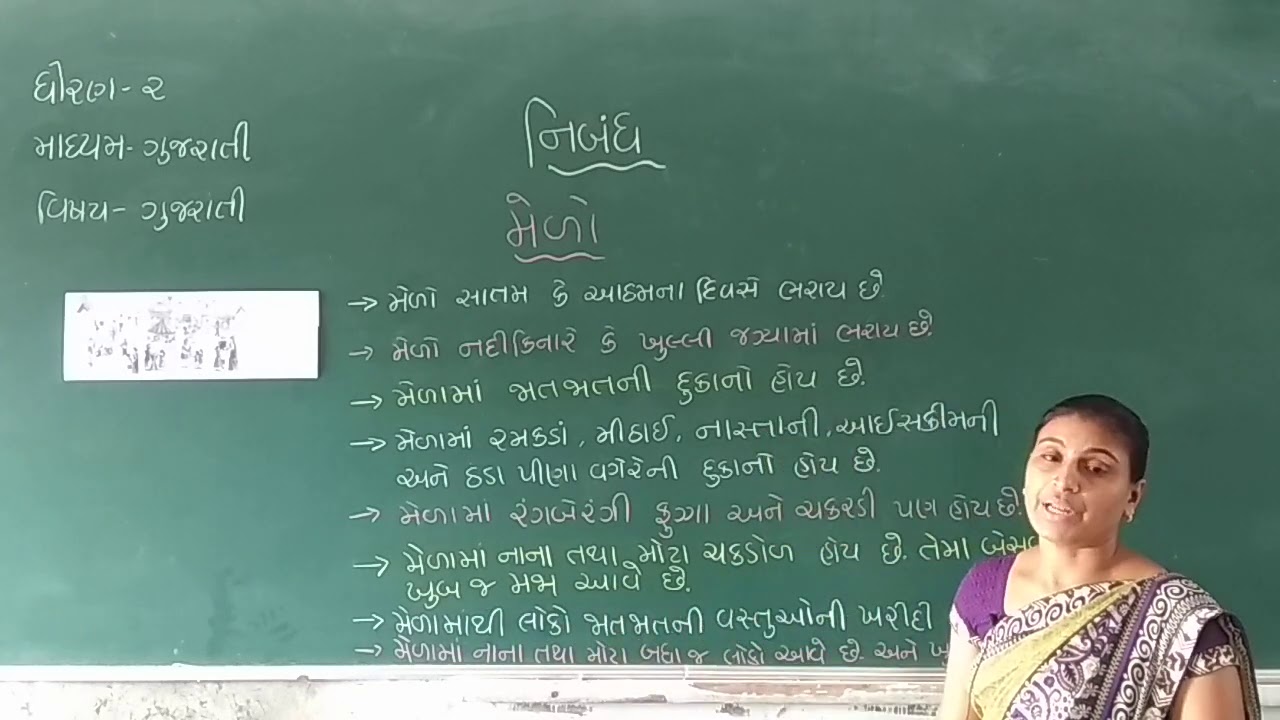 ધોરણ - ૨
માધ્યમ - ગુજરાતી
વિષય - ગુજરાતી
નિબંધ
મેળો
→ મેળો સાતમ કે આઠમના દિવસે ભરાય છે.
→ મેળો નદીકિનારે કે ખુલ્લી જગ્યામાં ભરાય છે.
→ મેળામાં જાતજાતની દુકાનો હોય છે.
→ મેળામાં રમકડાં, મીઠાઈ, નાસ્તાની, આઈસક્રીમની
અને ઠંડા પીણા વગેરેની દુકાનો હોય છે.
→ મેળામાં રંગબેરંગી ફુગ્ગા અને ચકરડી પણ હોય છે.
→ મેળામાં નાના તથા મોટા ચકડોળ હોય છે. તેમા
ખુબ જ મજા આવે છે.
→ મેળામાંથી લોકો જાતજાતની વસ્તુઓની ખરીદી
→ મેળામાં નાના તથા મોટા બધા જ લોકો આવે છે. અને